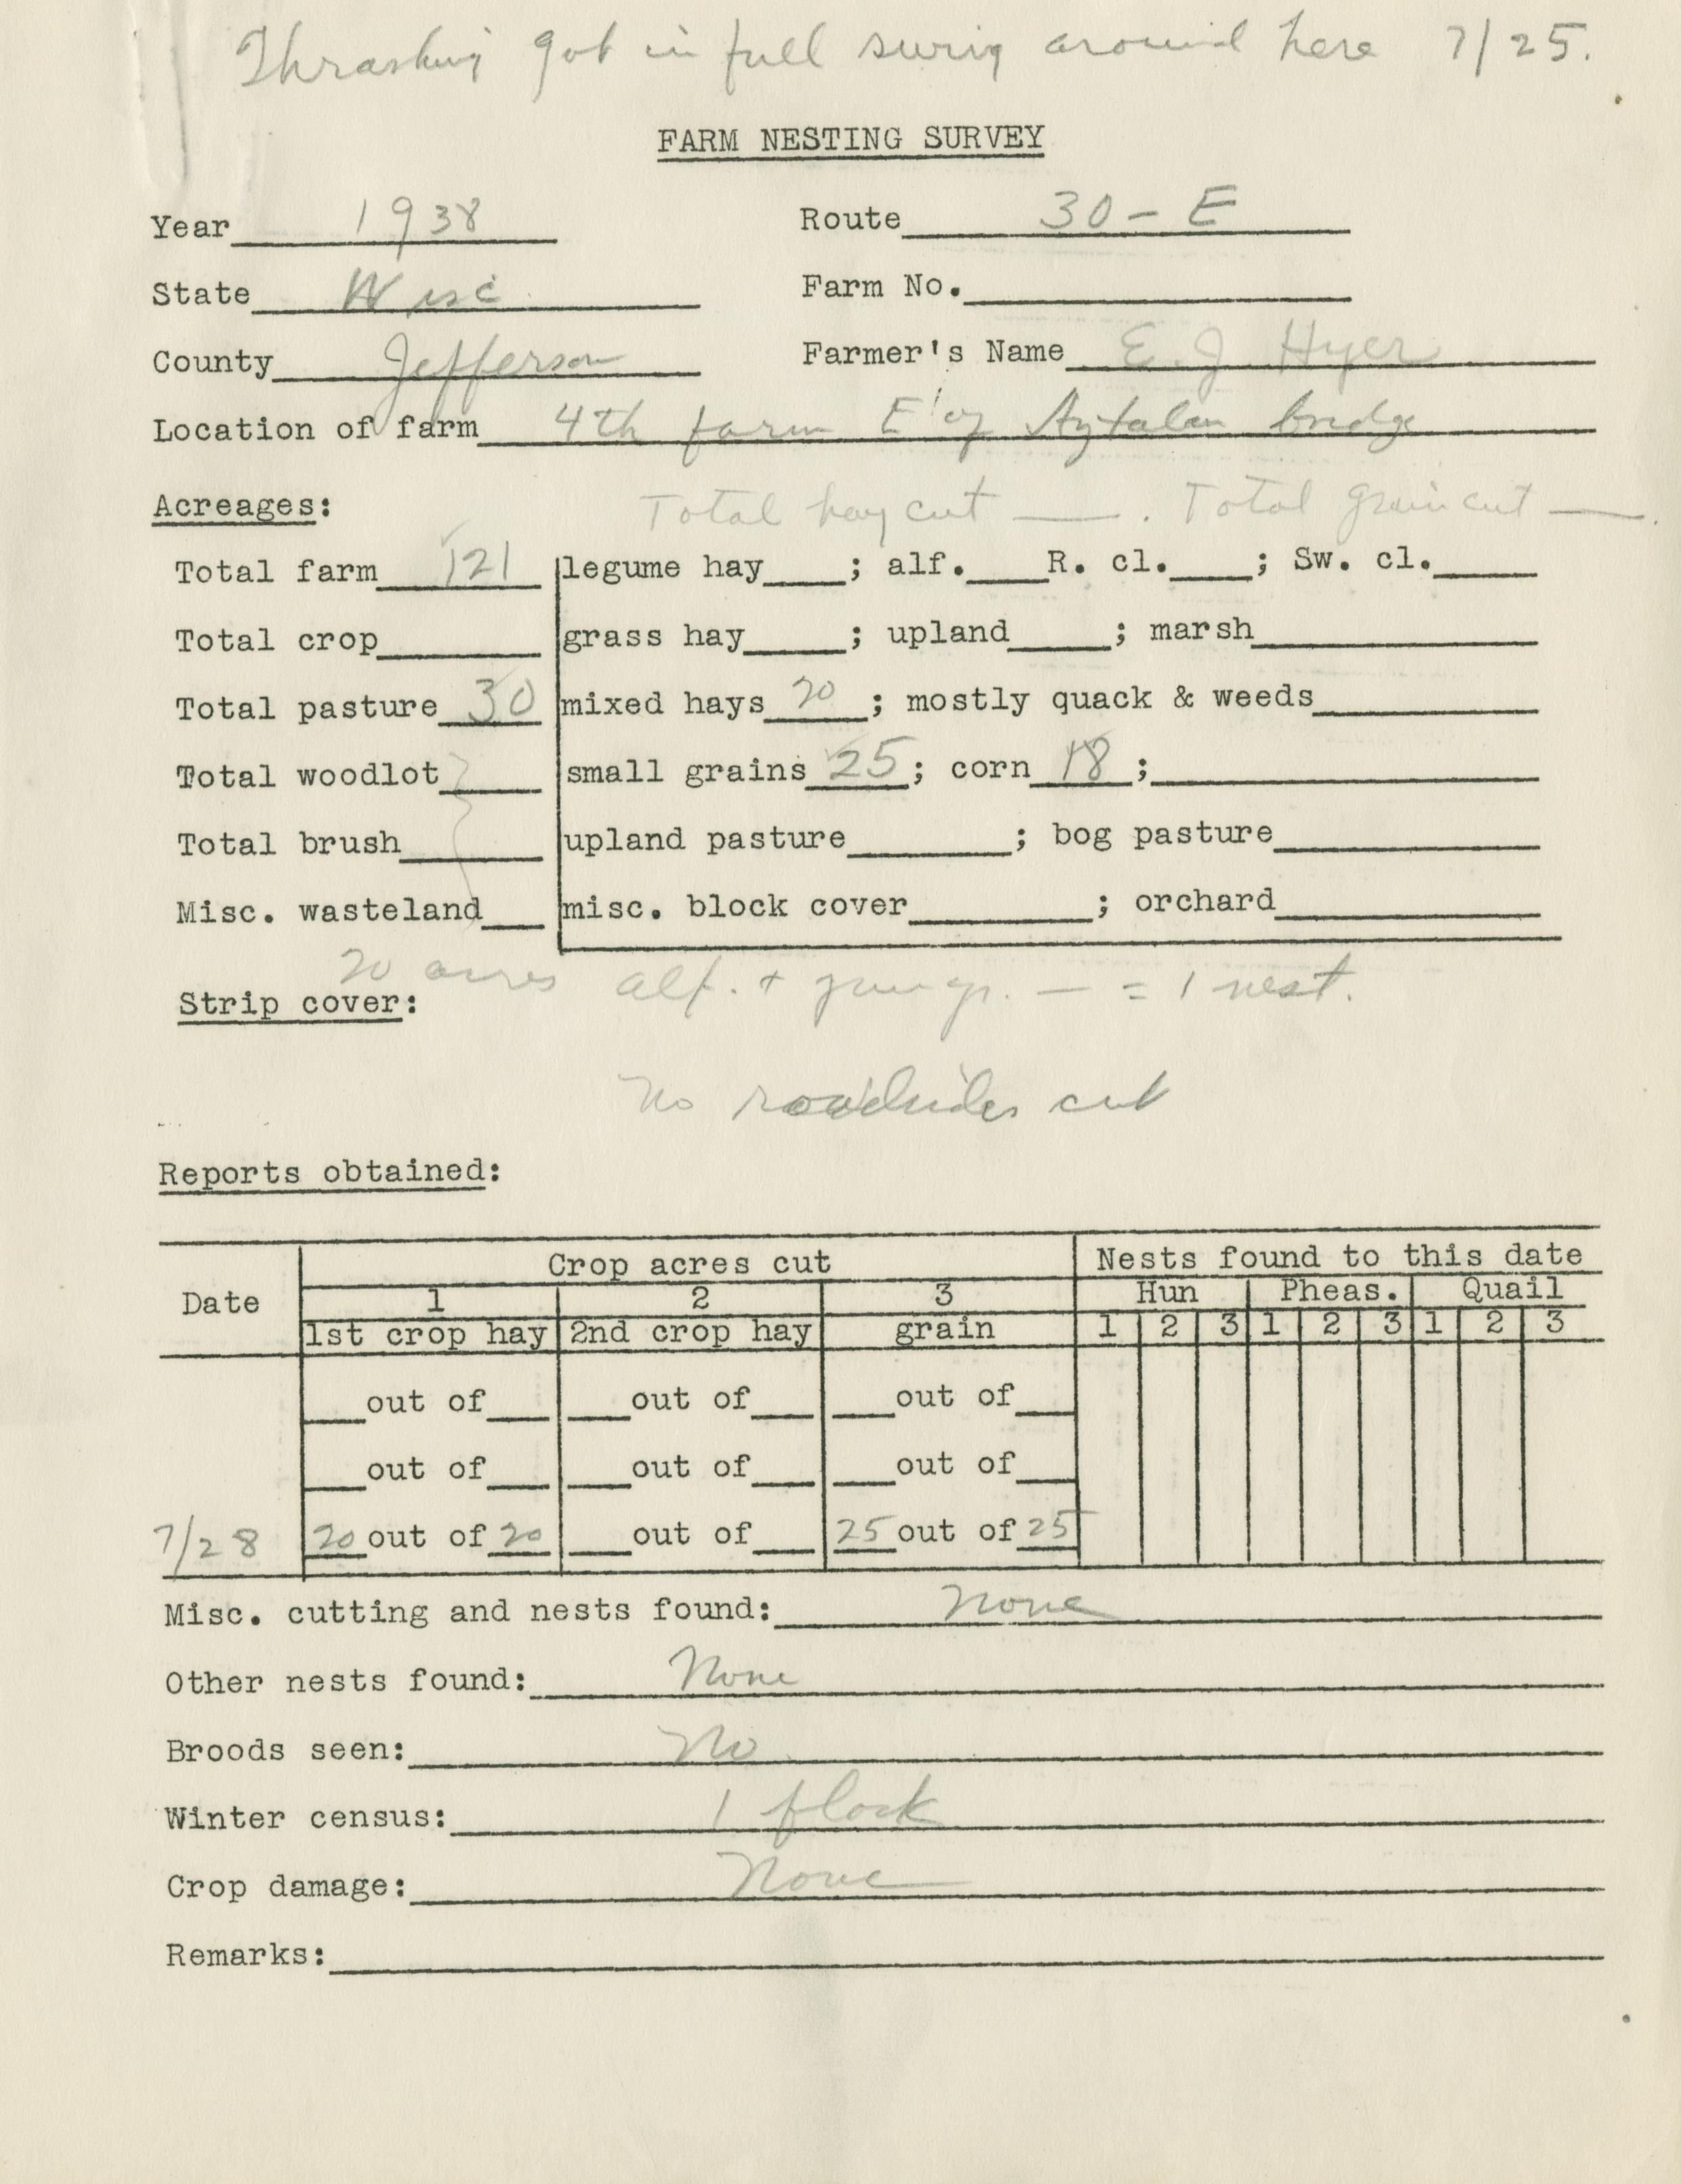 Thrashing got in full swing around here 7/25.
FARM NESTING SURVEY
Year 1938 Route 30 - E
State Wisc Farm No.
County Jefferson Farmer's Name E. J Hyer
Location of farm 4th farm E of Aztalan bridge
Acreages: Total hay cut ___. Total grain cut ___.
Total farm 121 legume hay____; alf.____R. cl.____; Sw. cl._____
Total crop________ grass hay_____; upland_____; marsh______________
Total pasture 30 mixed hays 20; mostly quack & weeds___________
Total woodlot_____ small grains 25; corn 18;___________________
Total brush_______ upland pasture________; bog pasture_____________
Misc. wasteland___ misc. block cover_________; orchard_____________
20 acres alf. + — = 1 nest.
Strip cover:
No roadsides cut
Reports obtained:
Date Crop acres cut Nests found to this date
1 2 3 Hun Pheas. Quail
1st crop hay 2nd crop hay grain 1 2 3 1 2 3 1 2 3
___out of___ ___out of___ ___out of___
___out of___ ___out of___ ___out of___
7/28 20 out of 20 ___out of___ 25 out of 25
Misc. cutting and nests found: none
Other nests found: None
Broods seen: No
Winter census: 1 flock
Crop damage: None
Remarks: